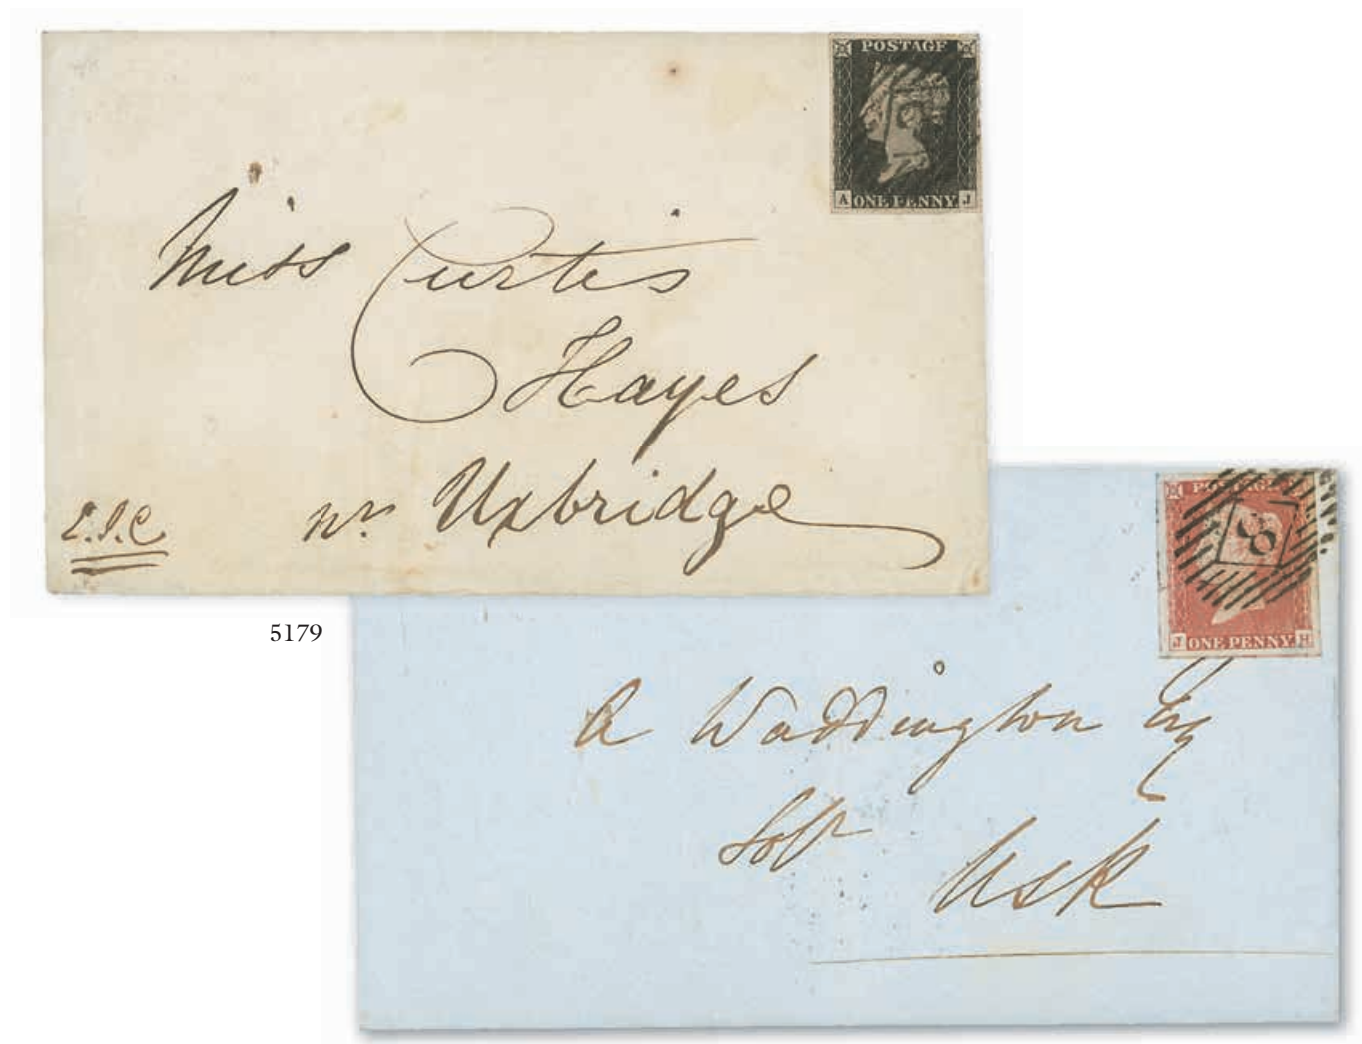 POSTAGE
A ONE PENNY J
Miss Curtis
Hayes
nr Uxbridge
E.J.C.
5179
8
J ONE PENNY H
A Waddington Esq
Solr
Usk